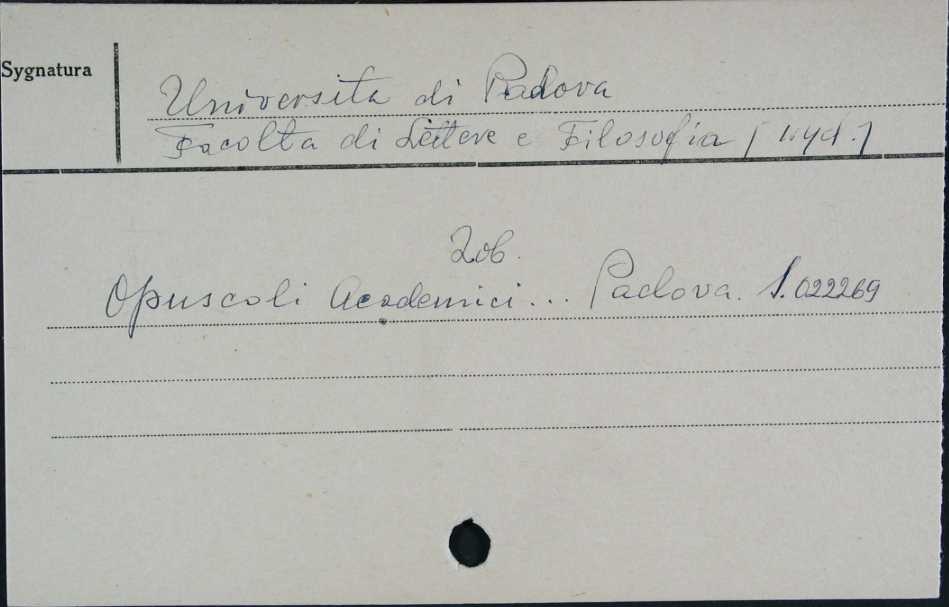 Sygnatura
Universita di Padova
Facolta di Lettere e Filosofia [wyd.]
Zob.
Opuscoli Academici... Padova. S.022269